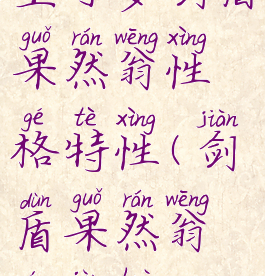 guǒ rán wēng xìng
果然翁性
gé tè xìng jiàn
格特性(剑
dùn guǒ rán wēng
盾果然翁